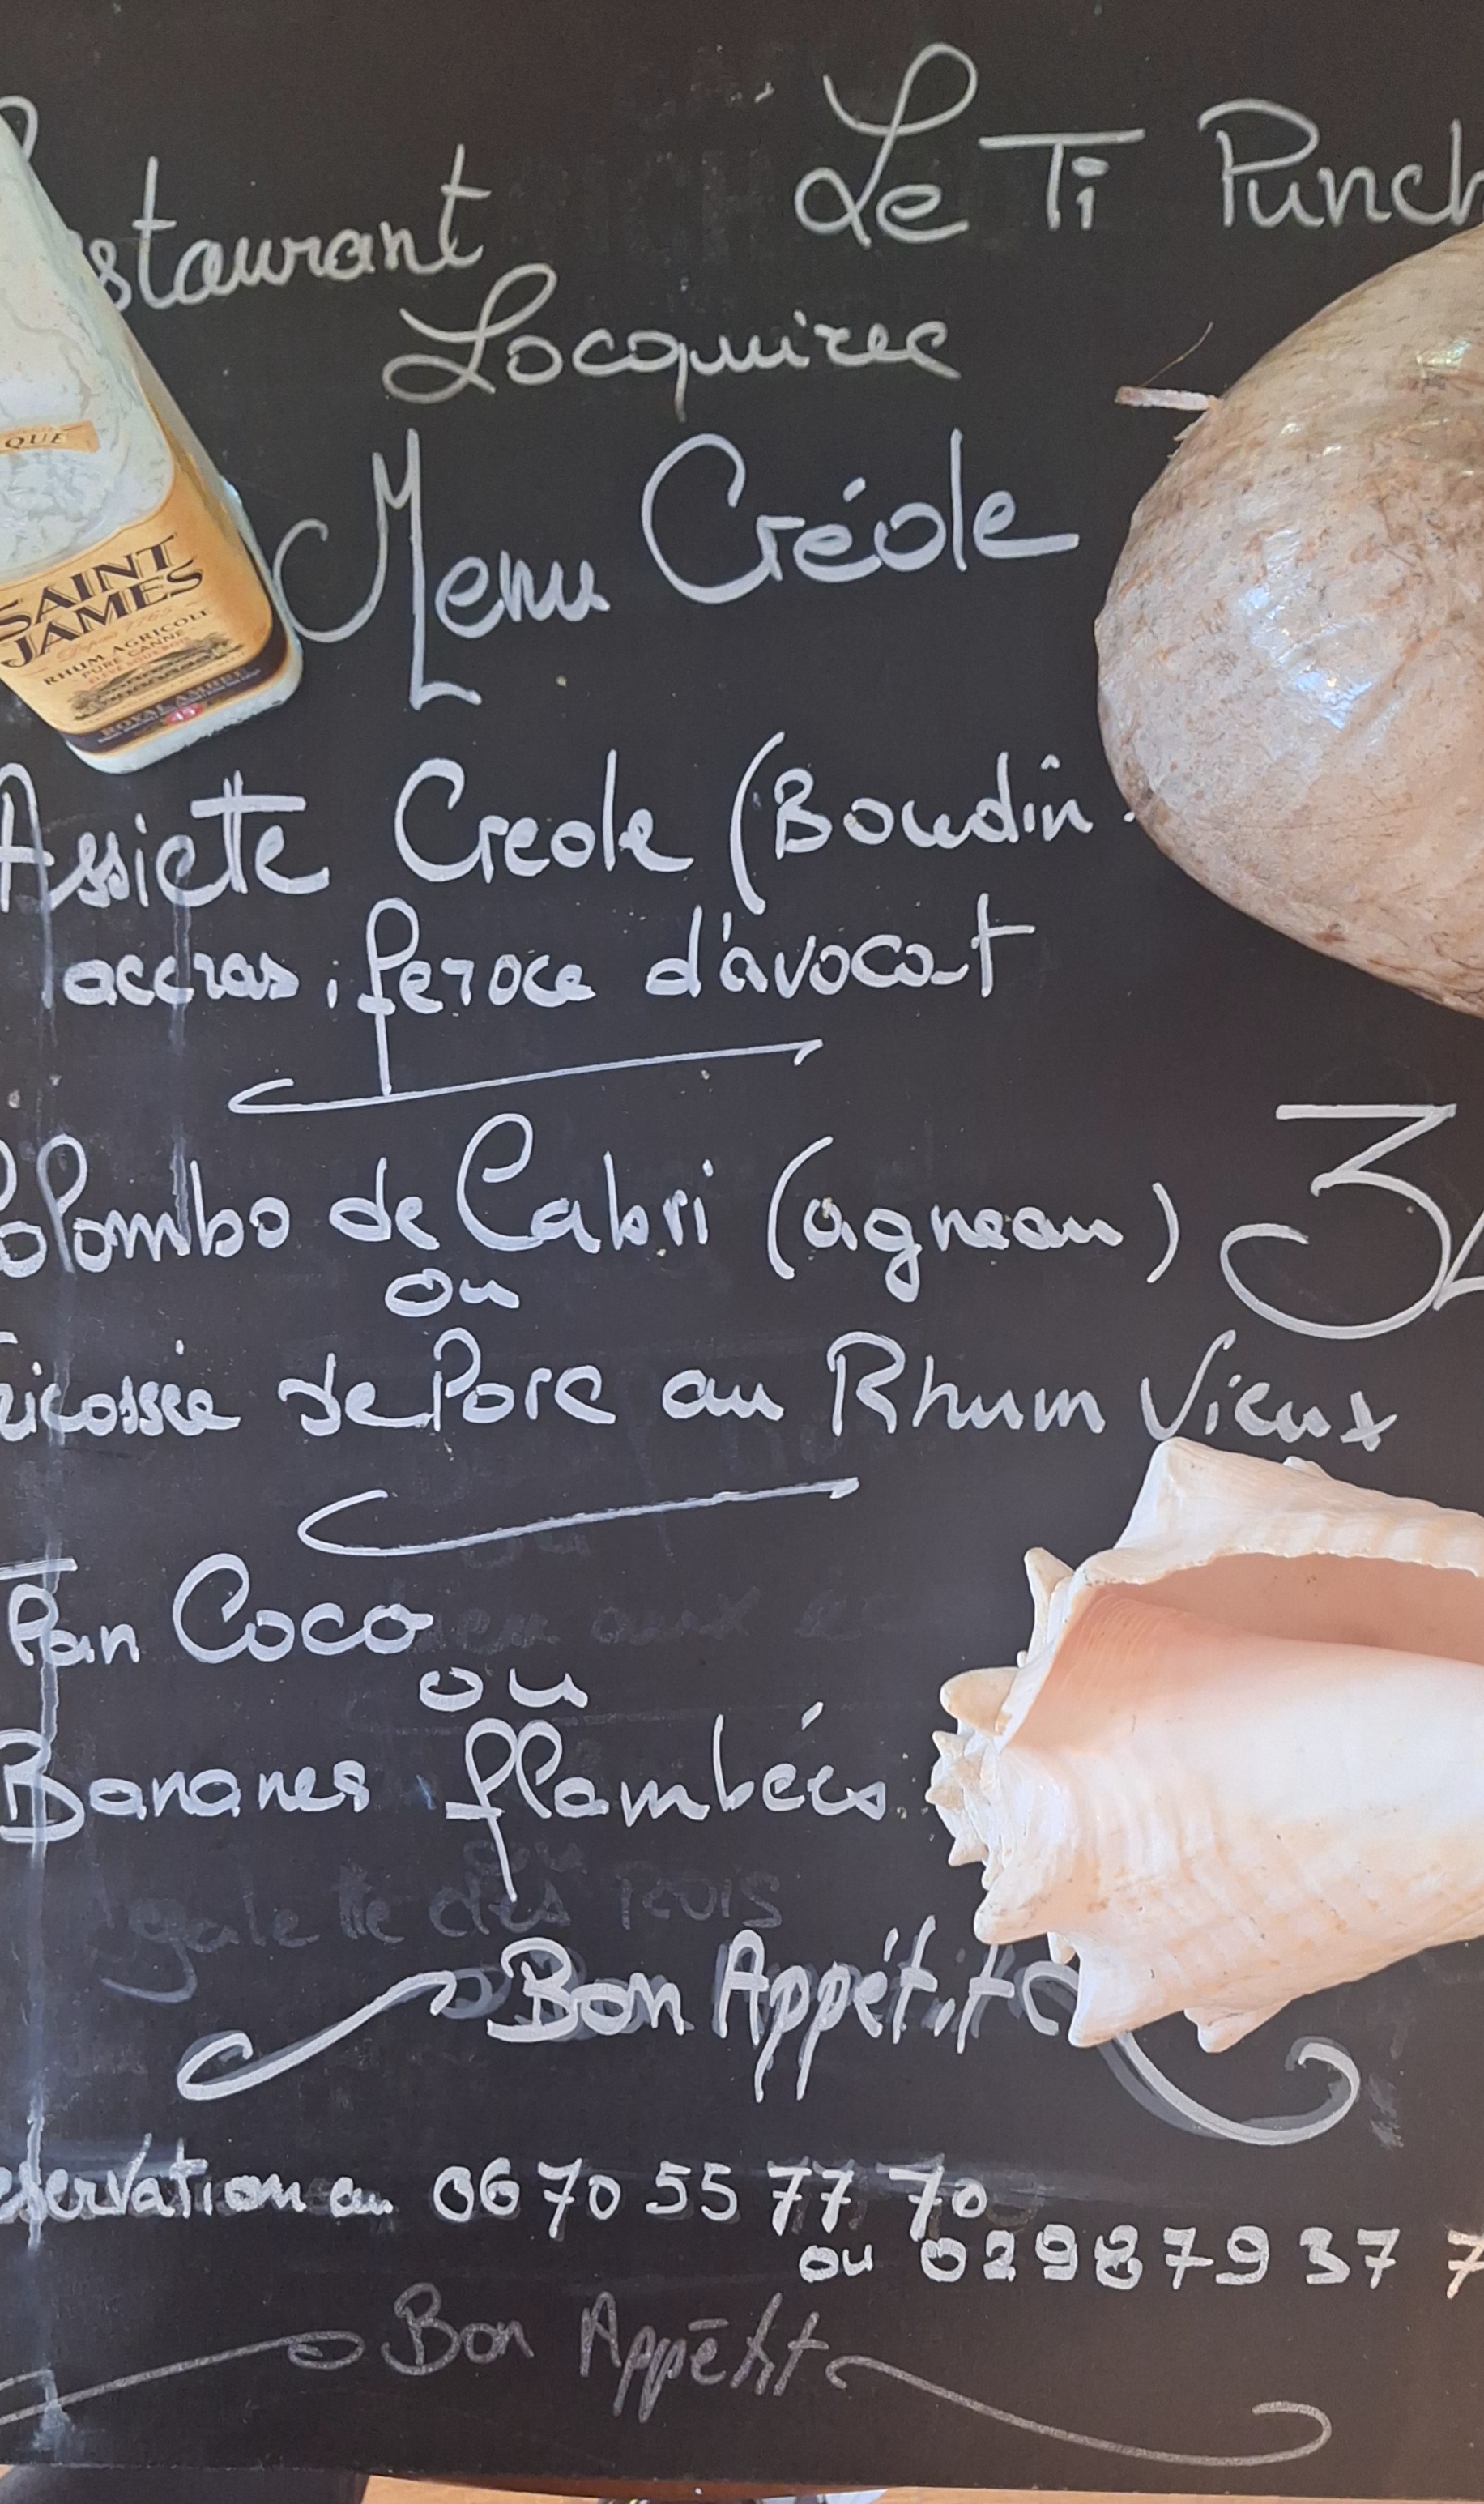 Restaurant Le Ti Punch
Locquirec
QUE
SAINT
JAMES
RHUM AGRICOLE
PURE CANNE
ROYAL AMBRÉ
45
Menu Créole
Assiette Creole (Boudin.
accras, feroce d'avocat
Colombo de Cabri (agneau)
3
ou
Fricassée de Porc au Rhum Vieux
Flan Coco
ou
Bananes flambées
galette des rois
Bon Appétit
eservation au 06 70 55 77 70
ou 02 98 79 37 7
Bon Appétit